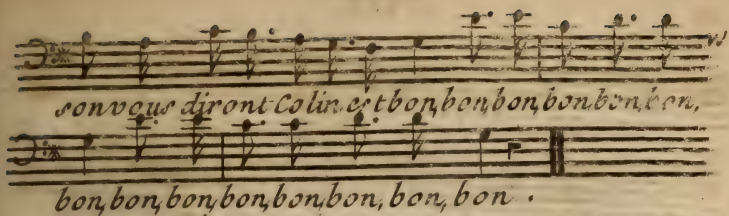 son vous diront Colin est bon, bon, bon, bon, bon, bon,
bon, bon, bon, bon, bon, bon, bon, bon .